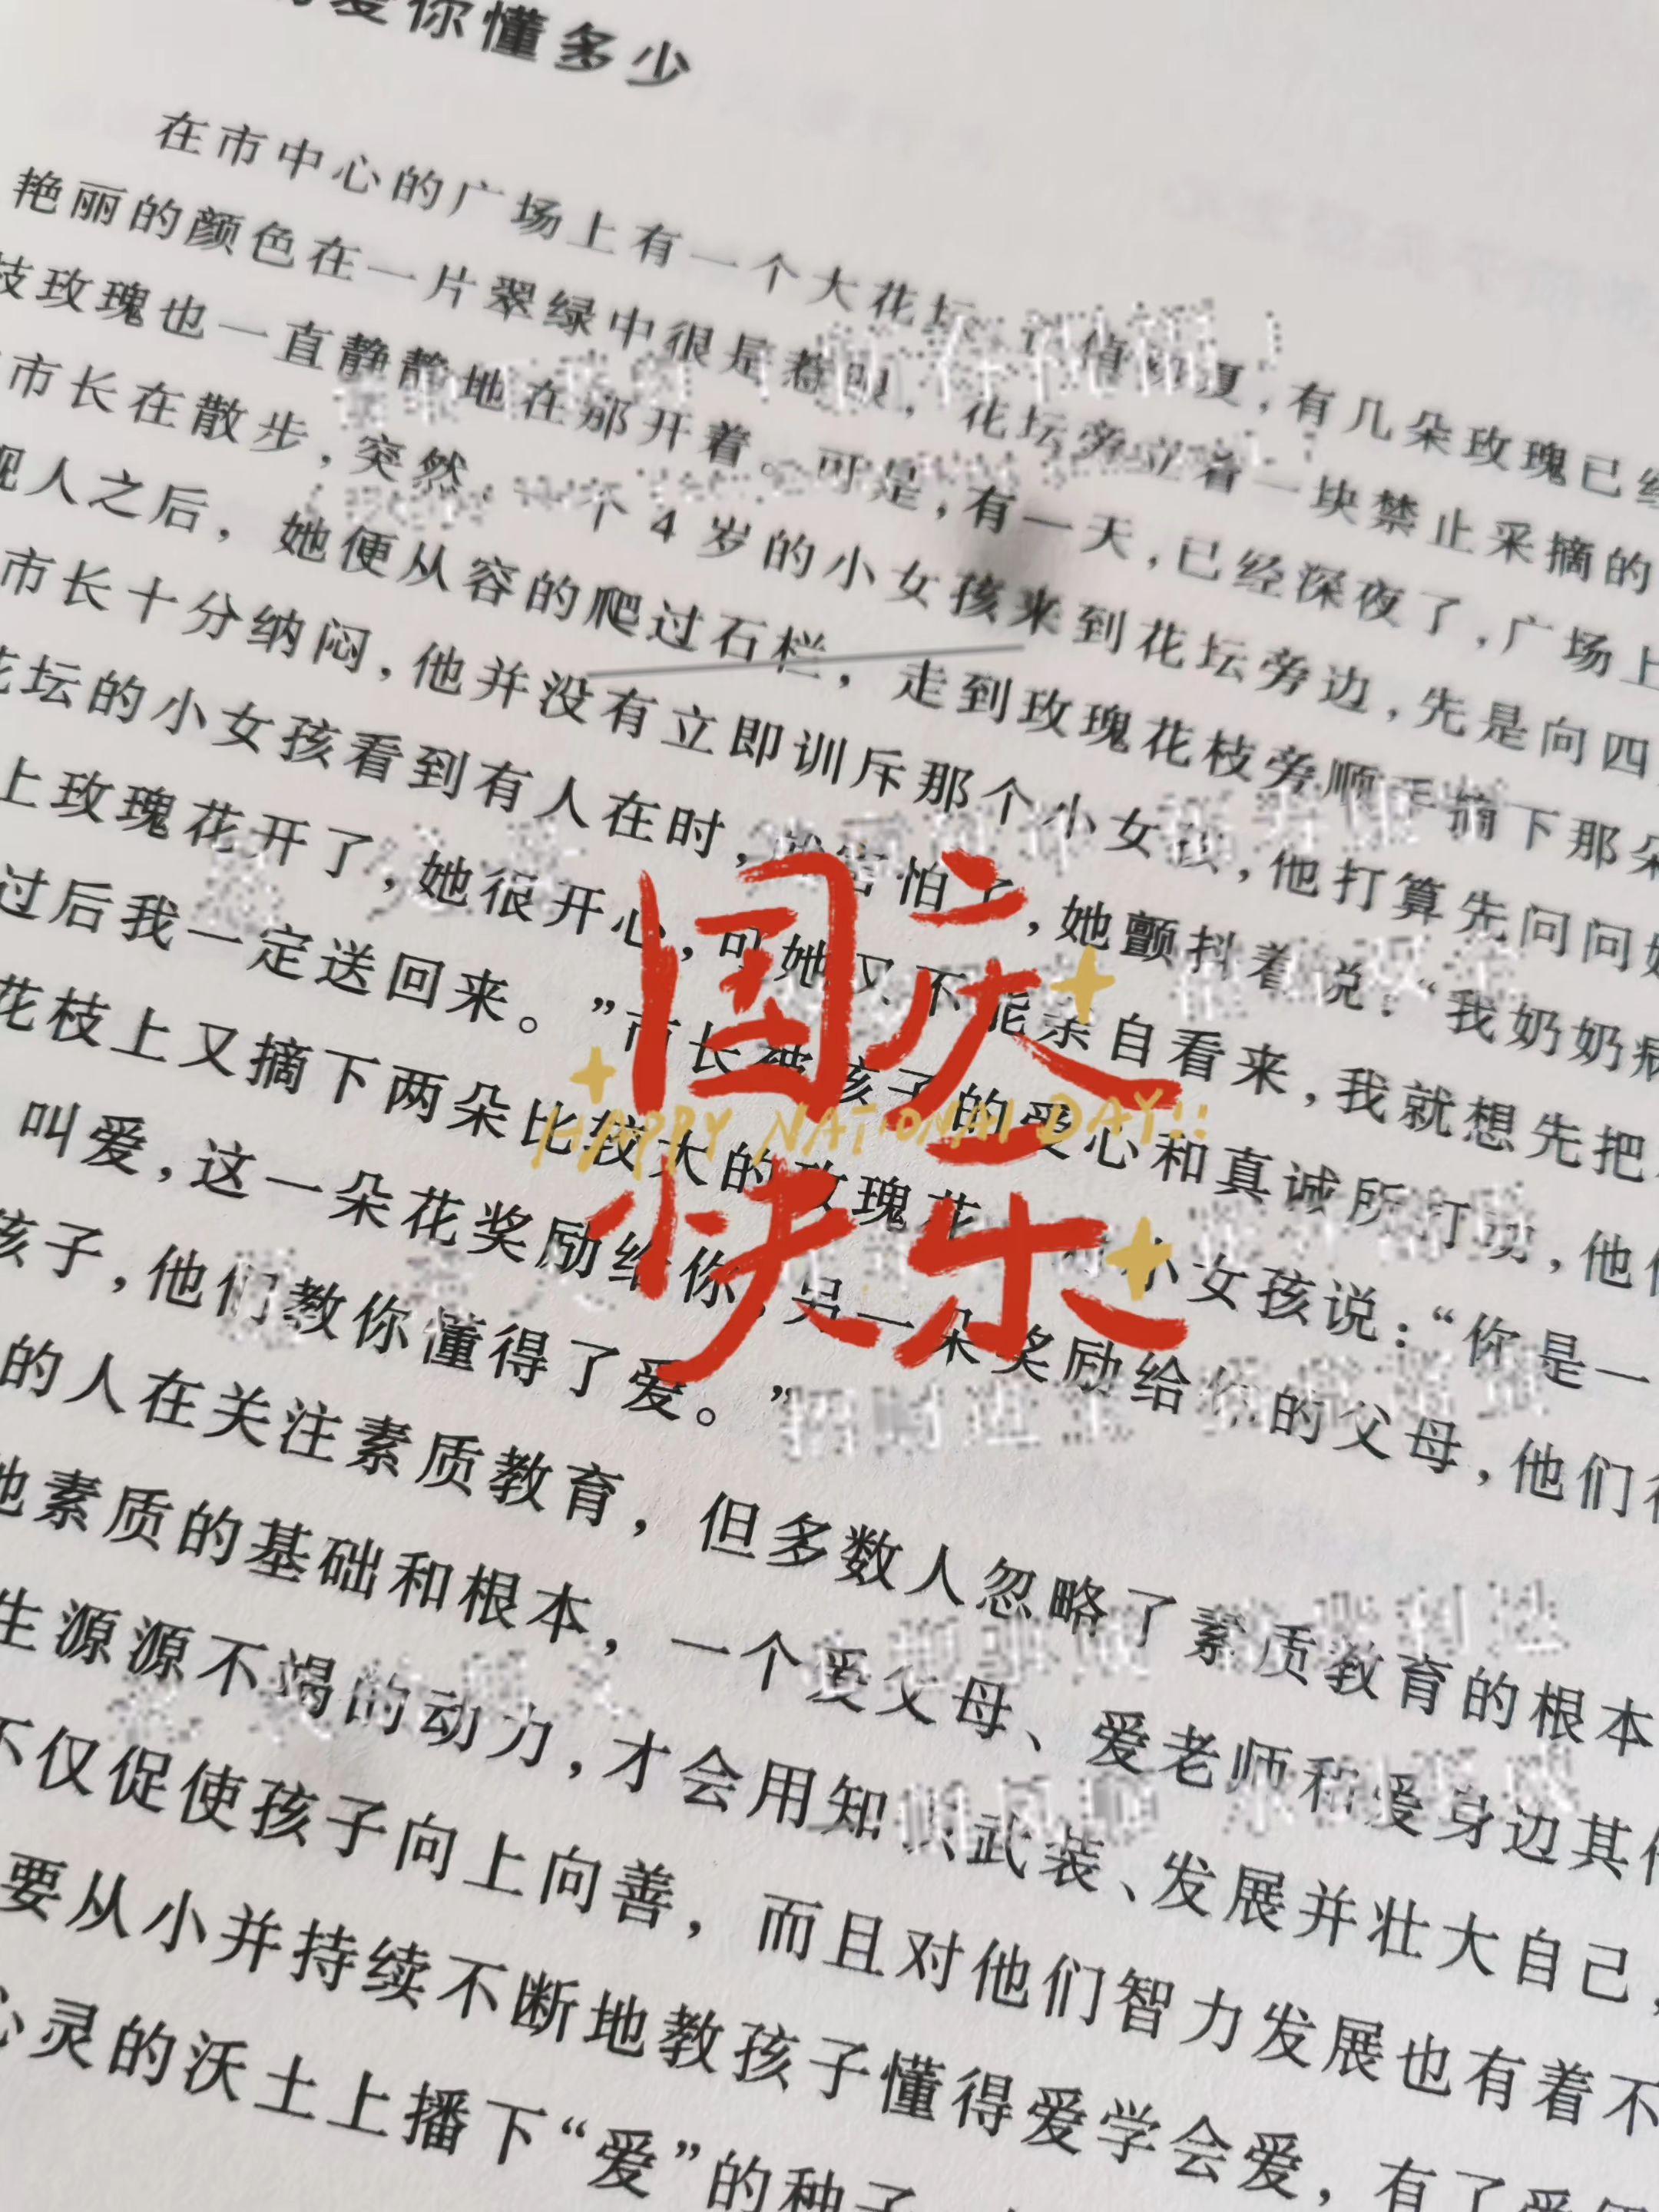 爱你懂多少
在市中心的广场上有一个大花坛，正值初夏，有几朵玫瑰已经
艳丽的颜色在一片翠绿中很是惹眼，花坛旁立着一块禁止采摘的
枝玫瑰也一直静静地在那开着。可是，有一天，已经深夜了，广场上
市长在散步，突然，一个4岁的小女孩来到花坛旁边，先是向四
人之后，她便从容的爬过石栏，走到玫瑰花枝旁顺手摘下那朵
市长十分纳闷，他并没有立即训斥那个小女孩，他打算先问问她
花坛的小女孩看到有人在时，害怕了，她颤抖着说：“我奶奶病
上玫瑰花开了，她很开心，可她又不能亲自看来，我就想先把
过后我一定送回来。”市长被孩子的爱心和真诚所打动，他
花枝上又摘下两朵比较大的玫瑰花，对小女孩说：“你是一
叫爱，这一朵花奖励给你，另一朵奖励给你的父母，他们
孩子，他们教你懂得了爱。”
的人在关注素质教育，但多数人忽略了素质教育的根本
他素质的基础和根本，一个爱父母、爱老师和爱身边其他
生源源不竭的动力，才会用知识武装、发展并壮大自己，
不仅促使孩子向上向善，而且对他们智力发展也有着不
要从小并持续不断地教孩子懂得爱学会爱，有了爱
心灵的沃土上播下“爱”的种子
国庆
HAPPY NATIONAL DAY!!
快乐